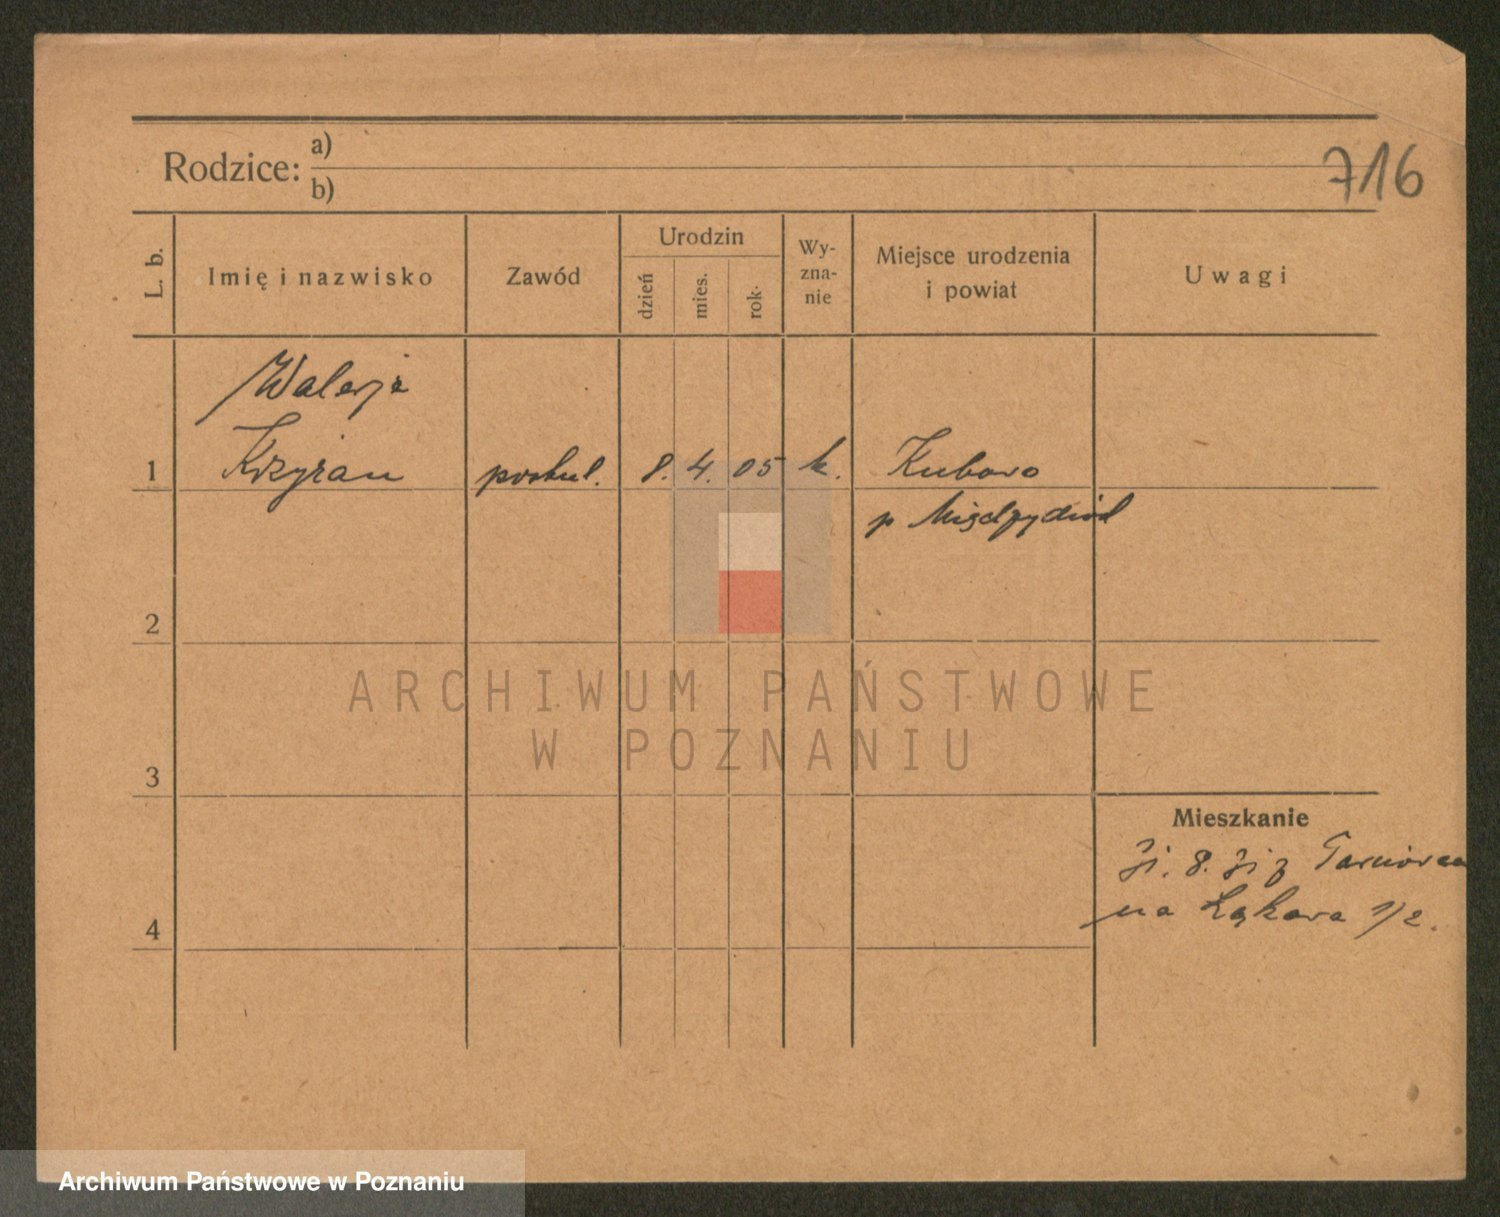 716
Rodzice: a)
b)
L. b.
Imię i nazwisko
Zawód
Urodzin
dzień
mies.
rok.
Wy-
zna-
nie
Miejsce urodzenia
i powiat
Uwagi
Walerja
1 Krzyżan poskul. 8. 4. 05 k. Kubowo
p Międzychód
2
ARCHIWUM PAŃSTWOWE
W POZNANIU
3
Mieszkanie
31. 8. 31 z Tarnowca
na Łąkowa 1/2.
4
Archiwum Państwowe w Poznaniu